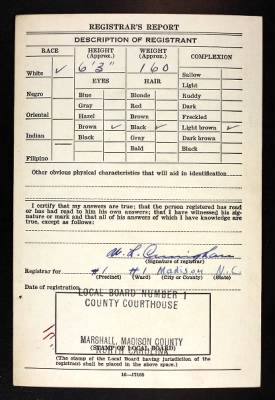 REGISTRAR'S REPORT
DESCRIPTION OF REGISTRANT
RACE HEIGHT (Approx.) WEIGHT (Approx.) COMPLEXION
White ✓ 6'3" 160 Sallow
EYES HAIR Light
Negro Blue Blonde Ruddy
Gray Red Dark
Oriental Hazel Brown Freckled
Brown ✓ Black ✓ Light brown ✓
Indian Black Gray Dark brown
Bald Black
Filipino
Other obvious physical characteristics that will aid in identification
I certify that my answers are true; that the person registered has read
or has had read to him his own answers; that I have witnessed his sig-
nature or mark and that all of his answers of which I have knowledge are
true, except as follows:
(Signature of registrar)
Registrar for #1 #1 Madison N.C
(Precinct) (Ward) (City or County) (State)
Date of registration
LOCAL BOARD NUMBER 1
COUNTY COURTHOUSE
MARSHALL, MADISON COUNTY
NORTH CAROLINA
(STAMP OF LOCAL BOARD)
(The stamp of the Local Board having jurisdiction of the
registrant shall be placed in the above space.)